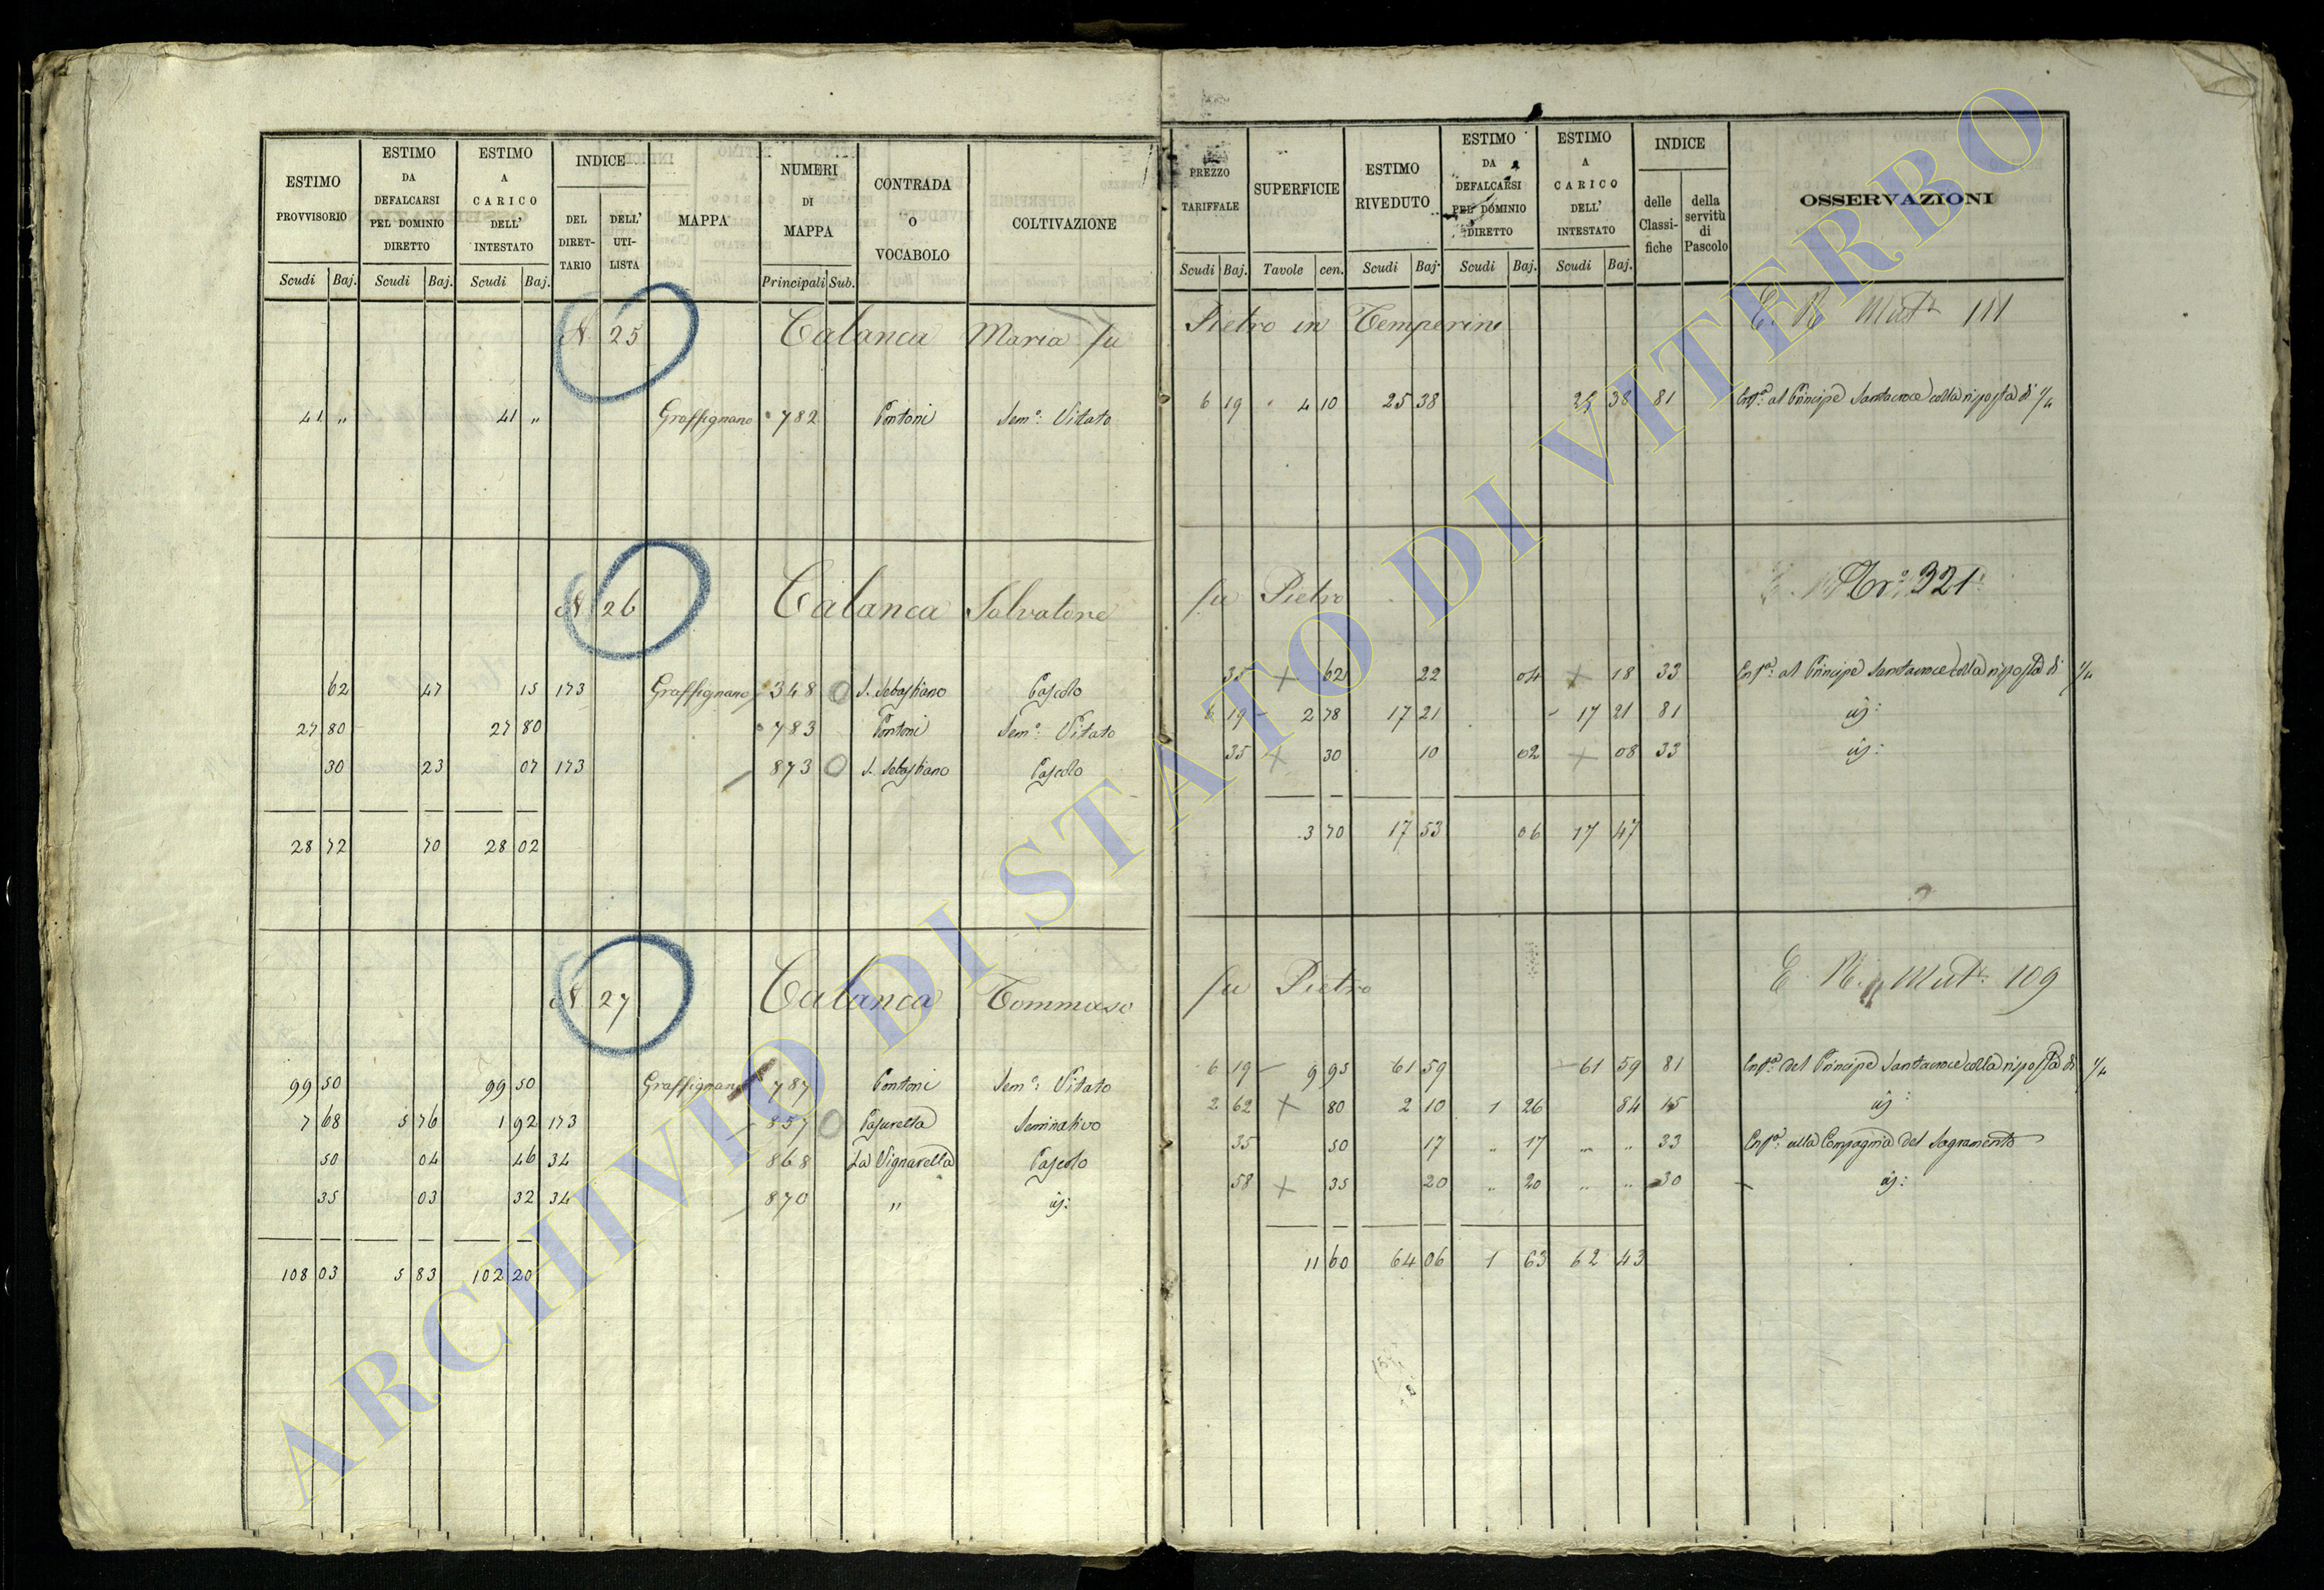 ESTIMO PROVVISORIO | ESTIMO DA DEFALCARSI PEL DOMINIO DIRETTO | ESTIMO A CARICO DELL' INTESTATO | INDICE | MAPPA | NUMERI DI MAPPA | CONTRADA O VOCABOLO | COLTIVAZIONE | PREZZO TARIFFALE | SUPERFICIE | ESTIMO RIVEDUTO | ESTIMO DA DEFALCARSI PEL DOMINIO DIRETTO | ESTIMO A CARICO DELL' INTESTATO | INDICE | OSSERVAZIONI
DEL DIRETTARIO | DELL' UTILISTA | delle Classifiche | della servitù di Pascolo
Scudi | Baj. | Scudi | Baj. | Scudi | Baj. | Principali | Sub. | Scudi | Baj. | Tavole | cen. | Scudi | Baj. | Scudi | Baj. | Scudi | Baj.
N. 25 Calanca Maria fu Pietro in Temperini E. N. Mut. 111
41 „ 41 „ Graffignano 782 Pontoni Sem.o Vitato 6 19 4 10 25 38 25 38 81 Enf.a al Principe Santacroce colla risposta di 1/4
N. 26 Calanca Salvatore fu Pietro Tr.o 321
62 47 15 173 Graffignano 348 S. Sebastiano Pascolo 35 62 22 04 18 33 Enf.a al Principe Santacroce colla risposta di 1/4
27 80 27 80 783 Pontoni Sem.o Vitato 6 19 2 78 17 21 17 21 81 id:
30 23 07 173 873 S. Sebastiano Pascolo 35 30 10 02 08 33 id:
28 72 70 28 02 3 70 17 53 06 17 47
N. 27 Calanca Tommaso fu Pietro E. N. Mut. 109
99 50 99 50 Graffignano 787 Pontoni Sem.o Vitato 6 19 9 95 61 59 61 59 81 Enf.a del Principe Santacroce colla risposta di 1/4
7 68 5 76 1 92 173 857 Seminativo 2 62 80 2 10 1 26 84 15 id:
50 04 46 34 868 La Vignarella Pascolo 35 50 17 „ 17 „ „ 33 Enf.a alla Compagnia del Sagramento
35 03 32 34 870 „ id: 58 35 20 „ 20 „ „ 30 id:
108 03 5 83 102 20 11 60 64 06 1 63 62 43
ARCHIVIO DI STATO DI VITERBO